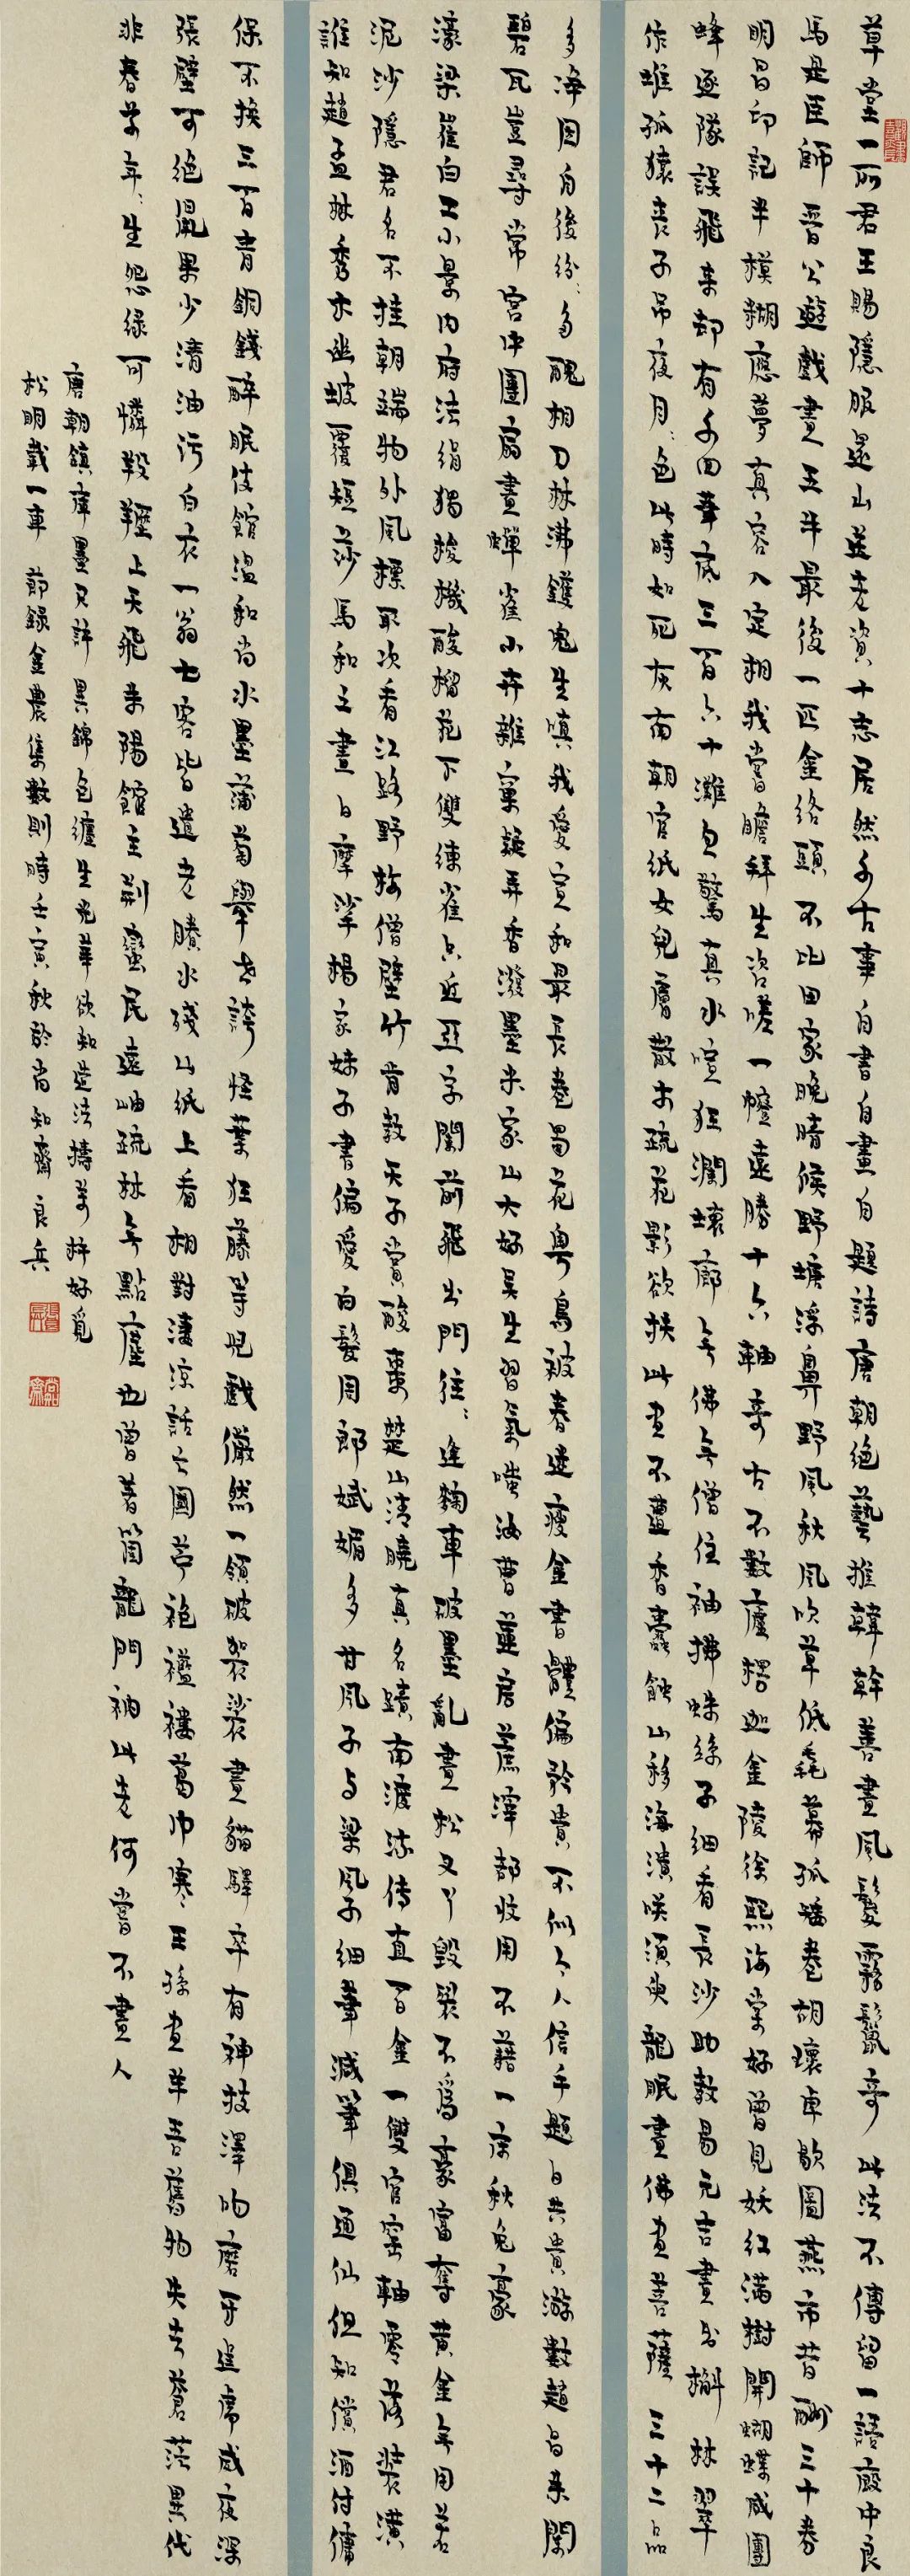 草堂一所君王賜隱服還山送老資十志居然千古事自書自畫自題詩唐朝絕藝推韓幹善畫風鬃霧鬣奇此法不傳留一語廄中良
馬是臣師晉公遊戲畫五牛最後一匹金絡頭不比田家晚晴候野塘浮鼻野風秋風吹草低毳幕孤蟠卷胡瓌卓歇圖燕市昔酬三十券
明昌印記半模糊應夢真容入定相我嘗瞻拜生咨嗟一幢遠勝十六軸奇古不數盧楞迦金陵徐熙海棠好曾見妖紅滿樹開蝴蝶成團
蜂逐隊誤飛來却有千回筆底三百六十灘白驚真水喧狂瀾壞廊無佛無僧住袖拂蛛絲子細看長沙助教易元吉畫出槲林翠
作堆孤猿喪子吊夜月月色此時如死灰南朝官紙女兒膚散木疏花影欲扶此畫不薑香蠹蝕山移海潰咲須臾龍眠畫佛畫菩薩三十二品
多淨因自後紛紛多醜相刀林沸鑊鬼生嗔我愛宣和最長卷蜀花粵鳥被春遮瘦金書體偏矜貴不似今人信手題日共貴游數趙昌朱闌
碧瓦豈尋常宮中團扇畫蟬雀小卉雜窠題弄香潑墨米家山大好吳生習氣嗤油曹蓮房蔗滓都收用不藉一床秋兔豪
濠梁崔白工小景內府法絹獨梭機酸榴花下雙練雀只近亞字闌前飛出門往往逢麴車破墨亂畫松叉丫毀裂不為豪富奪黃金無用若
泥沙隱君名不挂朝端物外風標取次看江路野梅僧壁竹肯教天子賞酸棗楚山清曉真名蹟南渡流傳直百金一雙官窰軸零落裝潢
誰知趙孟林秀木幽坡覆短莎馬和之畫日摩挲楊家妹子書偏愛白髮周郎斌媚多甘風子与梁風子細筆減筆俱通仙但知償酒付傭
保不換三百青銅錢醉眠伎館溫和尚水墨蒲萄舉世誇怪葉狂藤等兒戲儼然一領破袈裟畫貓驛卒有神技澤吻磨牙進席威夜深
張壁可絕鼠果少清油污白衣一翁七客皆遺老賸水殘山紙上看相對淒涼話亡國苧袍襤褸葛巾寒王孫畫羊吾舊物失去蒼茫異代
非春草年年生怨綠可憐羖䍽上天飛來陽館主荊蠻民遠岫疏林無點塵也曾著箇龍門衲此老何嘗不畫人
唐朝鎮庫墨只許異錦包纏生光華欲知造法擣萬杵好覓
松明載一車　節錄金農集數則時壬寅秋於尚知齋良兵